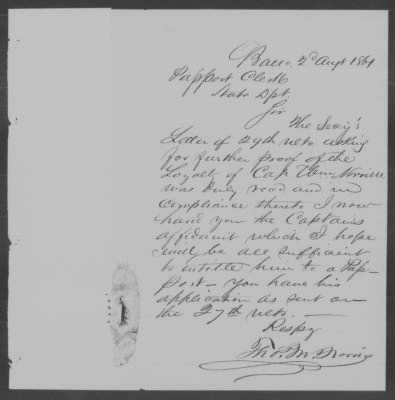 Balto 2d Augt 1861
Passport Clerk
State Dpt.
Sir
The Secy's
Letter of 29th ulto asking
for further proof of the
Loyalty of Capt
was duly read and in
compliance thereto I now
hand you the Captains
affidavit which I hope
will be all sufficient
to intitle him to a Pass-
port — you have his
application as sent on
the 27th ulto. —
Respy
Thos. M.